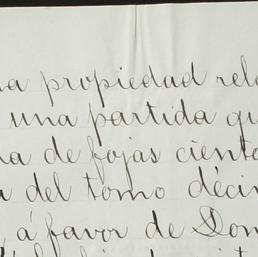 a propiedad rela
una partida qu
na de fojas ciento
a del tomo décim
, á favor de Don